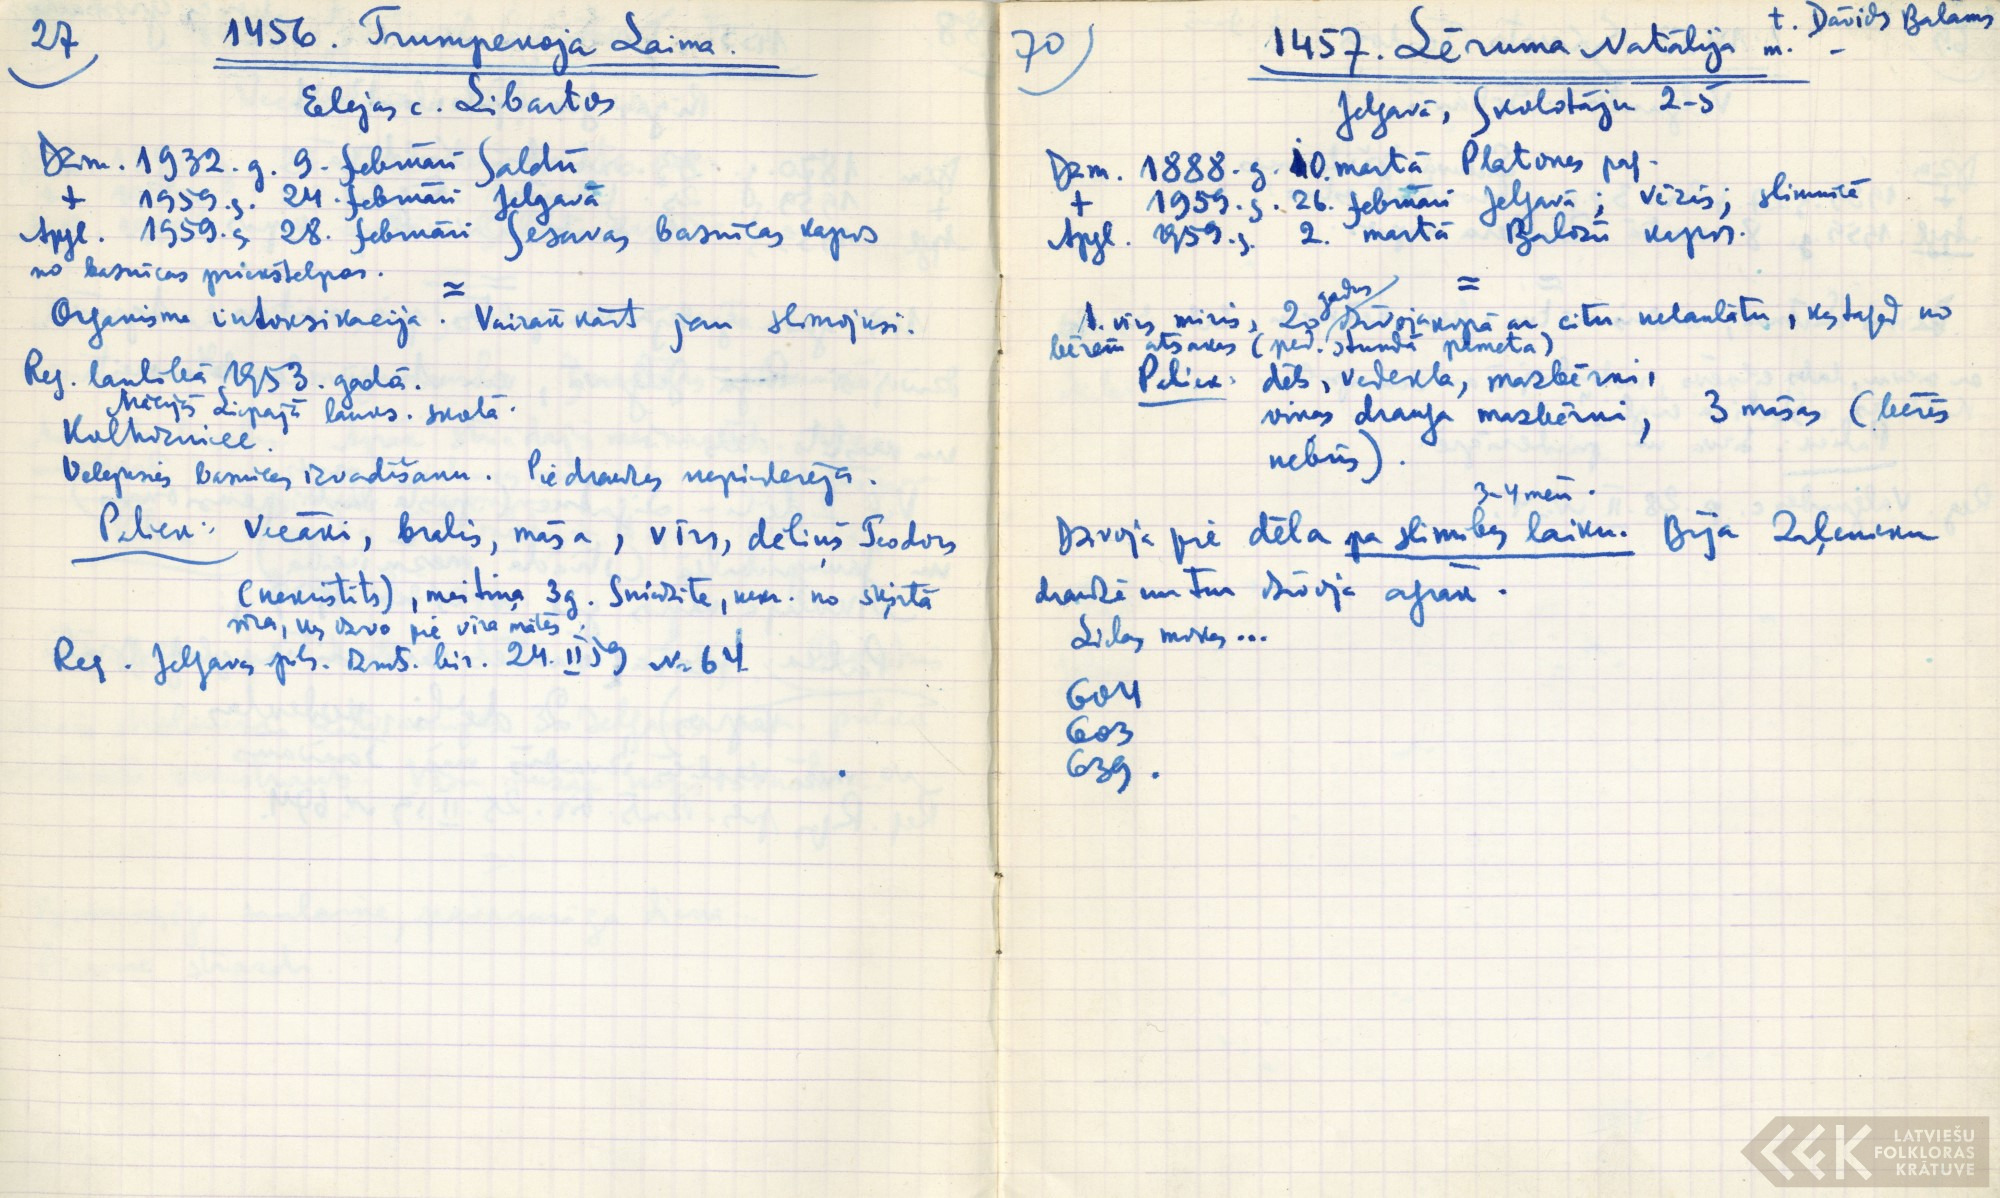 27
1456. Trumpekoja Laima.
Elejas c. Libartos
Dzim. 1932. g. 9. februārī Saldū
+ 1959. g. 24. februārī Jelgavā
Apgl. 1959. g. 28. februārī Sesavas baznīcas kapos
no baznīcas priekštelpas.
=
Organisma intoksikacija. Vairāk kārt jau slimojusi.
Reg. laulībā 1953. gadā.
Mācījās Liepajā lauks. skolā.
Kolhozniece.
Velejusēs baznīcas izvadīšanu. Pie draudzes nepiederēja.
Paliek: Vecāki, brālis, māsa, vīrs, dēliņš Teodors
(nekristīts), meitiņa 3 g. Sniedzīte, nekr. no šķirtā
vīra, kas dzīvo pie vīra mātes.
Reg. Jelgavas pils. Dzimts. bir. 24. II 59 № 64
70
1457. Lēruma Natālija
t. Dāvids Balāms
m. -
Jelgavā, Skolotāju 2-5
Dzm. 1888. g. 10. martā Platones pag.
+ 1959. g. 26. februārī Jelgavā; vēzis; slimnīcā
Apgl. 1959. g. 2. martā Baložu kapos.
=
1. vīrs miris, 20 gadus dzīvoja kopā ar citu nelaulātu, kas tagad no
bērēm atsakās (pēd. stundā pameta)
Paliek: dēls, vedekla, mazbērni,
viņas drauga mazbērni, 3 māsas (bērēs
nebūs).
3-4 mēn.
Dzīvoja pie dēla pa slimības laiku. Bija Zaļenieku
draudzē un tur dzīvoja agrāk.
Lielas mokas...
604
603
639.
LATVIEŠU
FOLKLORAS
KRĀTUVE